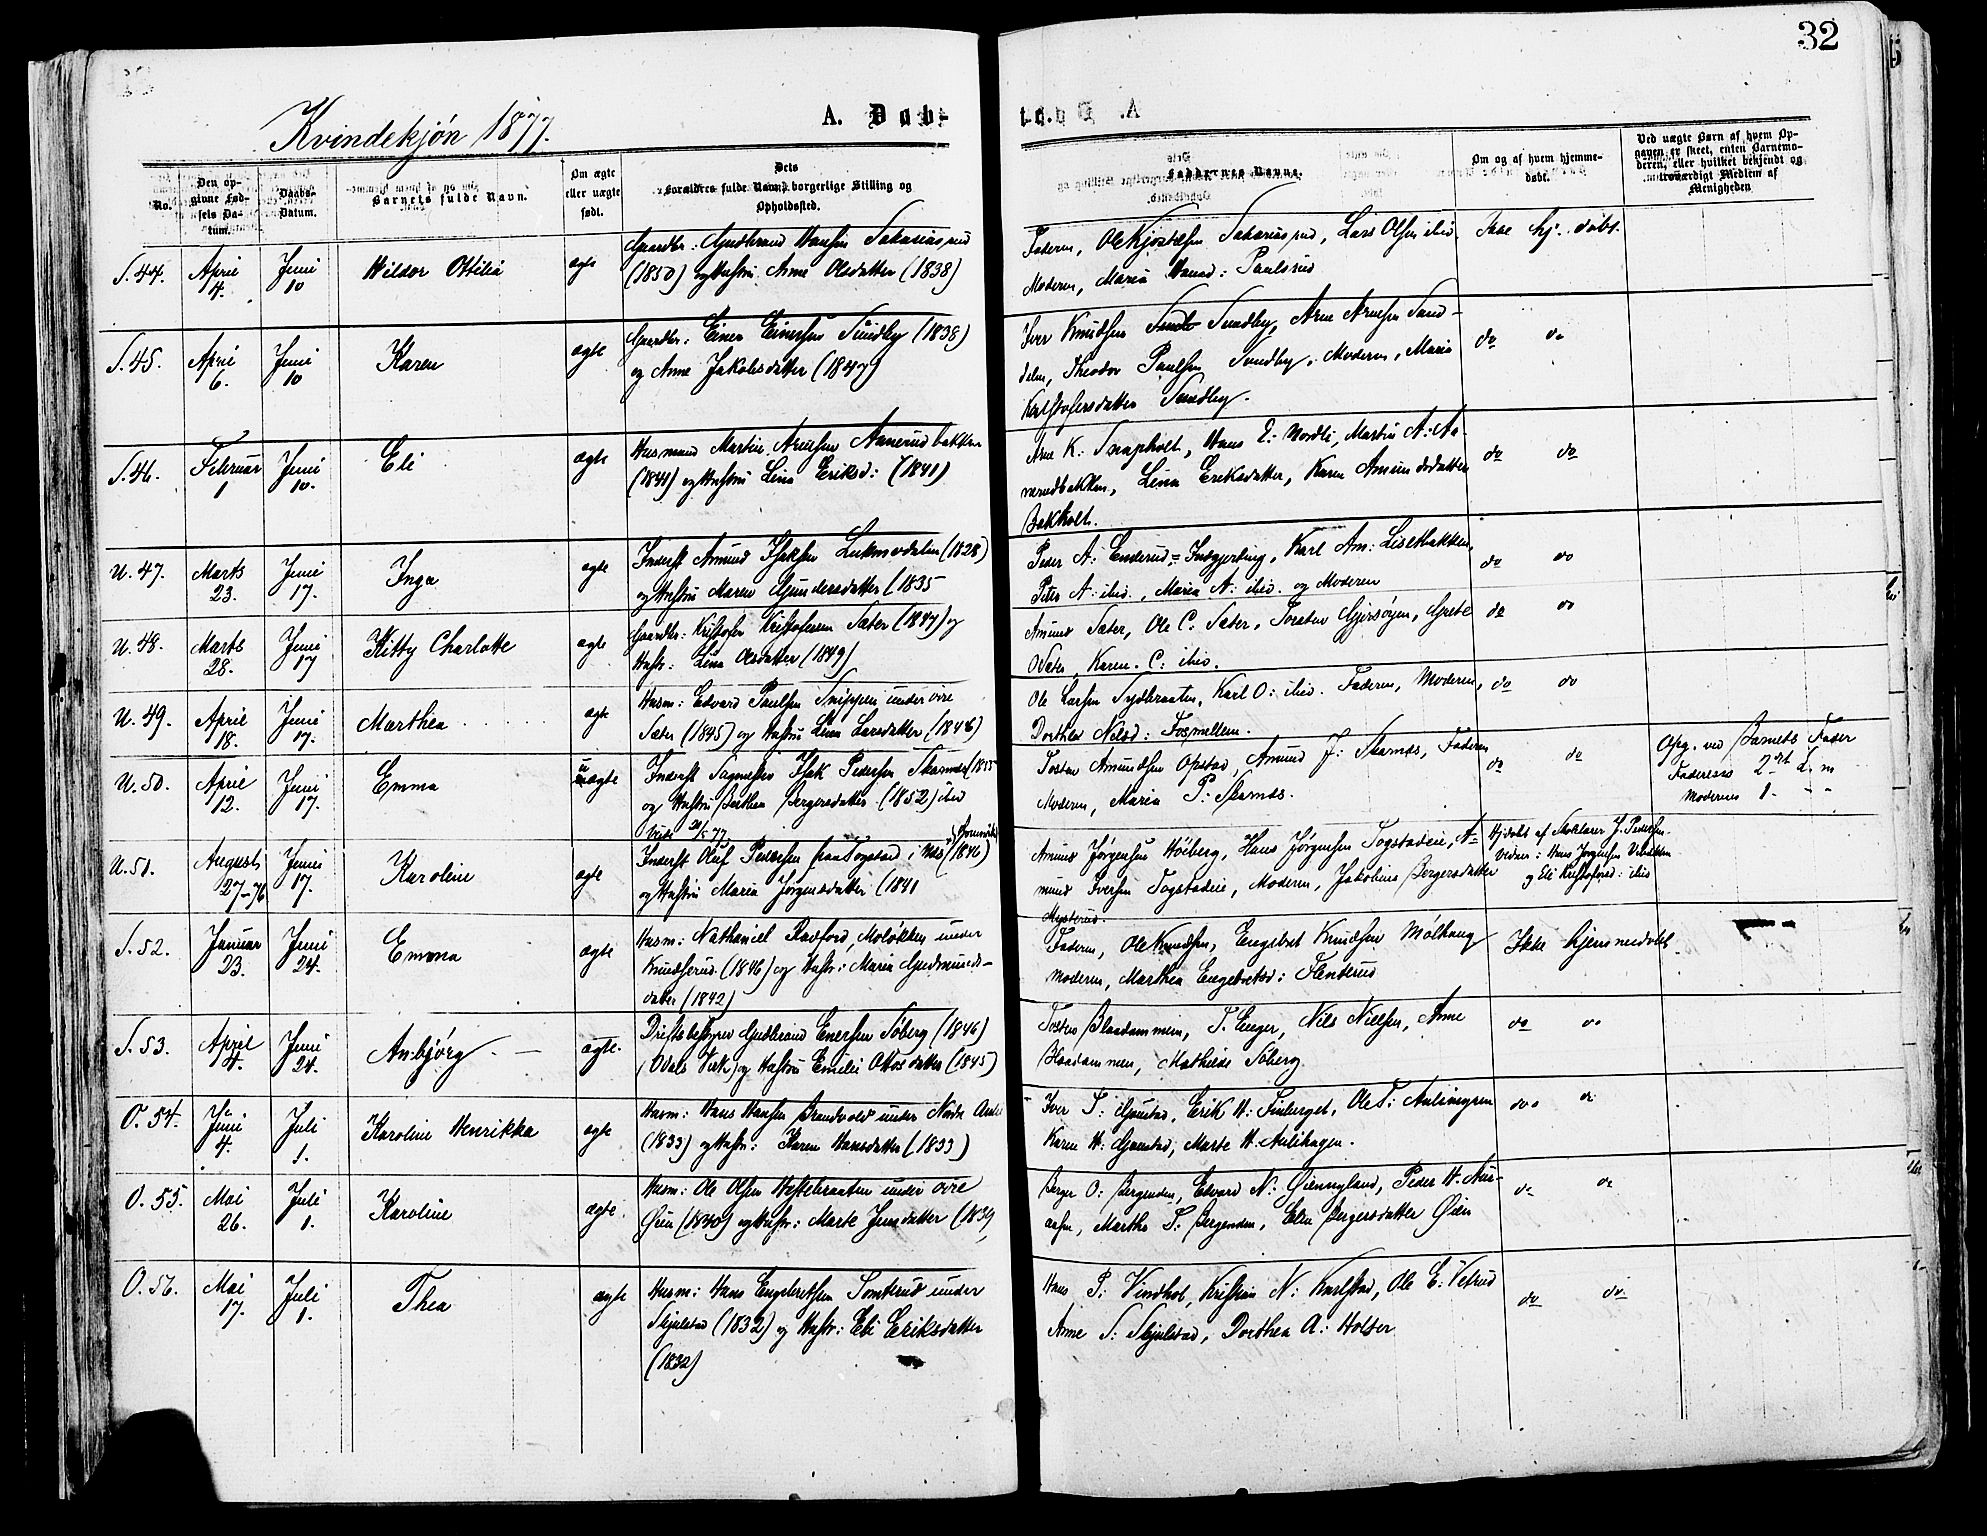 32
Kvindekjón 1877.
A. Daab-
No.
Den op-
givne Fød-
sels Da-
tum.
Daabs-
Datum.
Barnets fulde Navn.
Om ægte
eller uægte
født.
Dets
Forældres fulde Navn, borgerlige Stilling og
Opholdssted.
Faddernes Navne.
Om og af hvem hjemme-
døbt.
Ved uægte Børn af hvem Op-
gaven er skeet, enten Barnemo-
deren, eller hvilket bekjendt og
troværdigt Medlem af
Menigheden
S. 44. April 4. Juni 10 Hildor Ottilia ægte
Gaardbr: Gudbrand Hansen Sakariasrud
(1850) og Hustru Anne Olsdatter (1838)
Faderen, Ole Kjostelsen Sakariasrud, Lars Olsen ibid. Ikke hj. døbt.
Moderen, Maria Hansd: Paulsrud
S. 45. April 6. Juni 10 Karen ægte
Gaardbr: Einer Einersen Sundby (1838)
og Anne Jakobsdatter (1847)
Iver Knudsen Sundby, Arne Arnesen Sand-
dalen, Theodor Paulsen Sundby. Moderen, Maria do do
Kristofersdatter Sundby.
S. 46. Februar 1 Juni 10. Eli ægte
Husmand Martin Arnesen Aanerudbakken
(1841) og Hustru Lina Eriksd: (1841)
Arne K: Snapholt, Hans E: Nordli, Martin A: Aa-
nerudbakken, Lina Eriksdatter, Karen Amundsdatter do do
Bakholt.
U. 47. Marts 23. Juni 17. Inga ægte
Inderst Amund Isaksen (1828)
og Hustru Maren Gundersdatter (1835
Peder A: Enderud-Indgjerding, Karl Am: Lisetbakken,
Peter A: ibid., Maria A: ibid. og Moderen do do
U. 48. Marts 28. Juni 17 Kitty Charlotte ægte
Gaardbr: Kristofer Kristofersen Sæter (1847) og
Hustr: Lina Olsdatter (1849)
Amund Sæter, Ole C: Sæter, Grete do do
Karen. C: ibid.
U. 49. April 18. Juni 17. Marthea ægte
Husm: Edvard Paulsen Snippen under øvre
Sæter (1845) og Hustru Lina Larsdatter (1846)
Ole Larsen Sydbraaten, Karl O: ibid. Faderen, Moderen, do do
Dorthea Nilsd: Fosmellem.
U. 50. April 12. Juni 17. Emma uægte
Inderst Isak Pedersen Skarnæs (1855
og Hustru Berthea Bergersdatter (1852) ibid
Tosten Amundsen Opstad, Amund J: Skarnæs, Faderen do do
Moderen, Maria P: Skarnæs.
Opg. ved Barnets Fader
Faderens 2det L. m
Moderens 1. - -
U. 51. August 27-76 Juni 17. Karoline ægte
Inderst Oluf Pedersen fraa Togstad i Næs (1846)
og Hustru Maria Jørgensdatter (1841
Amund Jørgensen Høiberg, Hans Jørgensen Togstadeie, A-
mund Iversen Togstadeie, Moderen, Jakobine Bergersdatter
Mysterud.
Hjdøbt af Skolelærer J. Pedersen.
Vidner: Hans Jørgensen
og Eli Kristofersd: ibid
S. 52. Januar 23. Juni 24. Emma ægte
Husm: Nathaniel Radford, Moløkken under
Knudserud (1846) og Hustr: Maria Gudmunds-
datter (1842)
Faderen, Ole Knudsen, Engebret Knudsen Mølhaug Ikke hjemmedøbt
Moderen, Marthea Engebretsd: Flenterud
S. 53. April 4. Juni 24. Anbjörg ægte.
Driftsbestyrer Gudbrand Enersen Söberg (1846)
(Odals Verk) og Hustru Emilie Ottosdatter (1845)
Tosten Blaadammen, T. Enger, Nils Nielsen, Anne do do
Blaadammen, Mathilde Söberg
O. 54. Juni 4. Juli 1. Karoline Henrikka ægte
Husm: Hans Hansen Brandvold under Nordre
(1833) og Hustr: Karen Hansdatter (1833)
Iver T: Gjerstad, Erik H: Finberget, Ole T: Aulimyren do do
Karen H: Gjerstad, Marte H. Aulihagen.
O. 55. Mai 26. Juli 1. Karoline ægte.
Husm: Ole Olsen Hestebraaten under övre
Øien (1840) og Hustr: Marte Jensdatter (1839)
Berger O: Bergenden, Edvard N: Øiennyland, Peder H. do do
Marthe T: Bergenden, Elen Bergersdatter Øien
O. 56. Mai 17. Juli 1. Thea ægte
Husm: Hans Engebretsen Tomterud under
Skjulstad (1832) og Hustr: Eli Eriksdatter
(1832)
Hans P: Vindhol, Kristian N: Karlstad, Ole E: Vetrud do do
Anne S: Skjulstad, Dorthea A: Holter